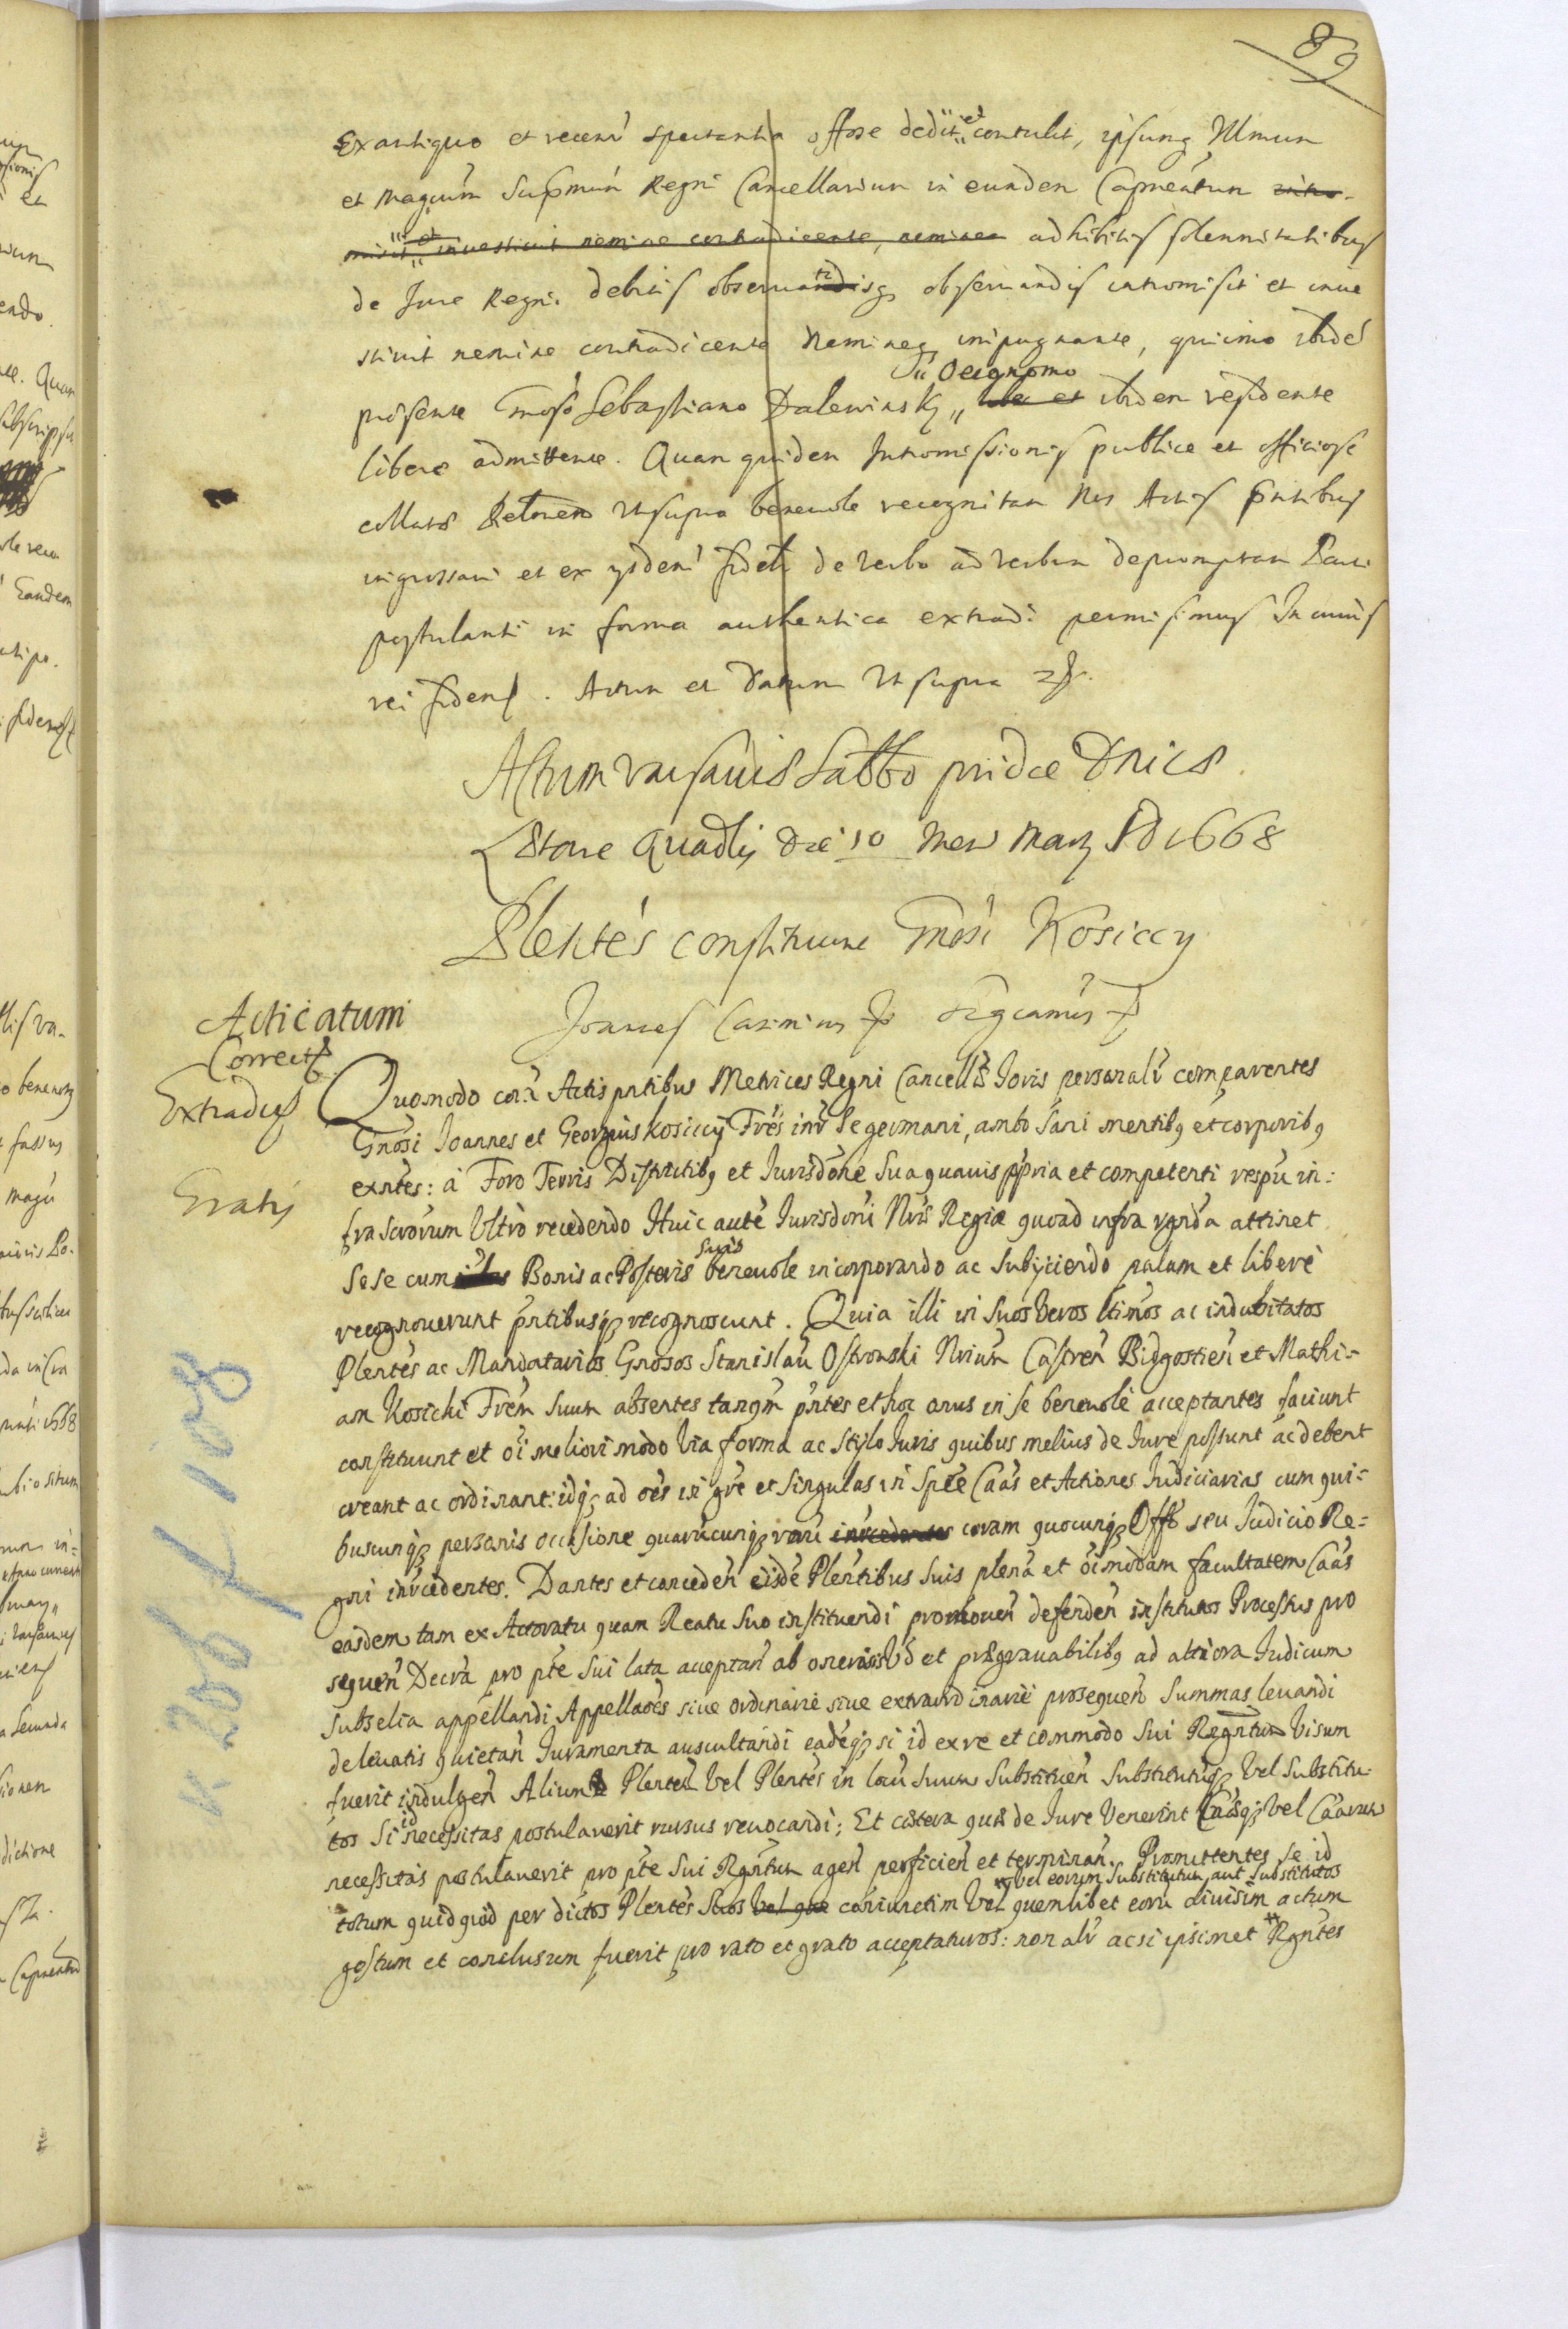 89
Ex antiquo et recenti spectantia offose dedit et contulit, ipsumq Illmum
et Magcum Supmum Regni Cancellarium in eundem Capneatum intro-
misit et investivit nemine contradicente, nemineq adhibitis solennitatibus
de Jure Regni debitis observatisq observandis intromisit et inve
stivit nemine contradicente Nemineq impugnante, quinimo ibidé
présente Gnoso Sebastiano Dalewinsky Oeconomo ibidem residente
libere admittente. Quam quidem Intromissionis publice et officiose
collatæ Reloném Ut supra benevole recognitam Nos Actis pntibus
ingrossari et ex ysdem fideli de verbo ad verbum depromptam Parti
postulanti in forma authentica extradi permisimus In cuius
rei fidem. Actum et Datum Ut supra
Actum Varsaviæ Sabbo pridie Dnicæ
Lætare Quadlis Die 10 Mens Marty AD 1668
Plentés constituunt Gnosi Kosiccy
Acticatum
Joannes Casimirus
Significamus
Correct
Extraditus
Gratis
Quomodo corā Actis pntibus Metrices Regni Cancellæ Ioris personalr comparentes
Gnosi Joannes et Georgius Kosiccy Frés intr Se germani, ambo Sani mentibq et corporibq
exntes: à Foro Terris Districtibq et Jurisdone Sua quavis ppria et competenti respū in:
frascrorum Ultrò recedendo Huic auté Jurisdoni Nrīs Regiæ quoad infra rpnda attinet
Sese cum Bonis ac Posteris suis benevole incorporando ac subijciendo palam et liberè
recognoverunt pntibusq recognoscunt. Quia illi in Suos Veros ltimos ac indubitatos
Plentes ac Mandatarios Gnosos Stanislaū Ostrowski Nrium Castren Bidgostien et Mathi-
am Kosicki Frém Suum absentes tanqm pntes et hoc onus in se benevolè acceptantes faciunt
constituunt et oi meliori modo via forma ac Stylo Iuris quibus melius de Jure possunt ac debent
creant ac ordinant: idq ad oés in gre et Singulas in Spée Caás et Actiones Judiciarias cum qui-
buscunq personis occasione quarūcunq rerū invcedentes coram quocunq Offo seu Judicio Re-
gni invcedentes. Dantes et conceden eisdé Plentibus Suis plenā et oimodam facultatem Caás
easdem tam ex Actoratu quam Reatu Suo instituendi promoven defenden institutos Processus pro
sequen Decra pro pte Sui lata acceptan ab onerosis Vd et prægravabilibq ad altiora Judicum
Subselia appellandi Appellaoés sive ordinarié sive extraordinarié prosequen Summas levandi
de levatis quietan Juramenta auscultandi eadéq si id ex re et commodo Sui Rgntum Visum
fuerit indulgen Alium Plentem Vel Plentes in locū Suum Substituen Substitutūq Vel Substitu-
tos Si id necessitas postulaverit rursus revocandi; Et cætera quæ de Jure Venerint Caásq vel Caárum
necessitas postulaverit pro pte Sui Rgntum agen perficien et terminan. Promittentes se id
vel eorum Substitutum aut Substitutos
totum quidquid per dictos Plentés Suos vel que coniunctim Vel quemlibet eorū divisim actum
gestum et conclusum fuerit pro rato et grato acceptaturos: non alr acsi ipsimet Rgntes
K 208 f 108